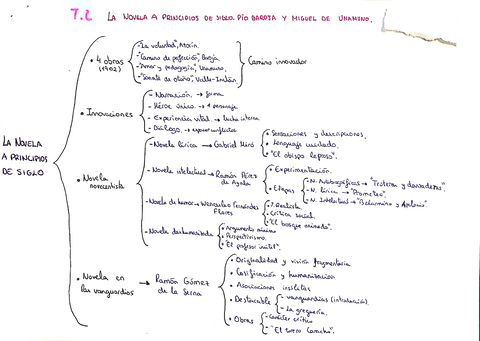 T.2 LA NOVELA A PRINCIPIOS DE SIGLO. PÍO BAROJA Y MIGUEL DE UNAMUNO.
LA NOVELA A PRINCIPIOS DE SIGLO
• 4 obras (1902)
- "La voluntad", Azorín.
- "Camino de perfección", Baroja
- "Amor y pedagogía", Unamuno.
- "Sonata de otoño", Valle-Inclán.
Camino innovador
• Innovaciones
- Narración. → forma
- Héroe único. → 1 personaje
- Experiencia vital. → lucha interna
- Diálogo. → exponer conflictos
• Novela novecentista
- Novela lírica → Gabriel Miró
• Sensaciones y descripciones.
• Lenguaje cuidado.
• "El obispo leproso".
- Novela intelectual → Ramón Pérez de Ayala
• Experimentación.
• Etapas
- N. Autobiográficas → "Tinieblas y danzaderas"
- N. lírica → "Prometeo".
- N. Intelectual → "Belarmino y Apolonio"
- Novela de humor → Wenceslao Fernández Flores
• T. Realista.
• Crítica social.
• "El bosque animado".
- Novela deshumanizada
• Argumento mínimo
• Perspectivismo.
• "El profesor inútil".
• Novela en las vanguardias → Ramón Gómez de la Serna
• Originalidad y visión fragmentaria
• Cosificación y humanización
• Asociaciones insólitas
• Destacable
- vanguardias (introducción).
- La greguería.
• Obras
- Carácter crítico
- "El torero Caracho".